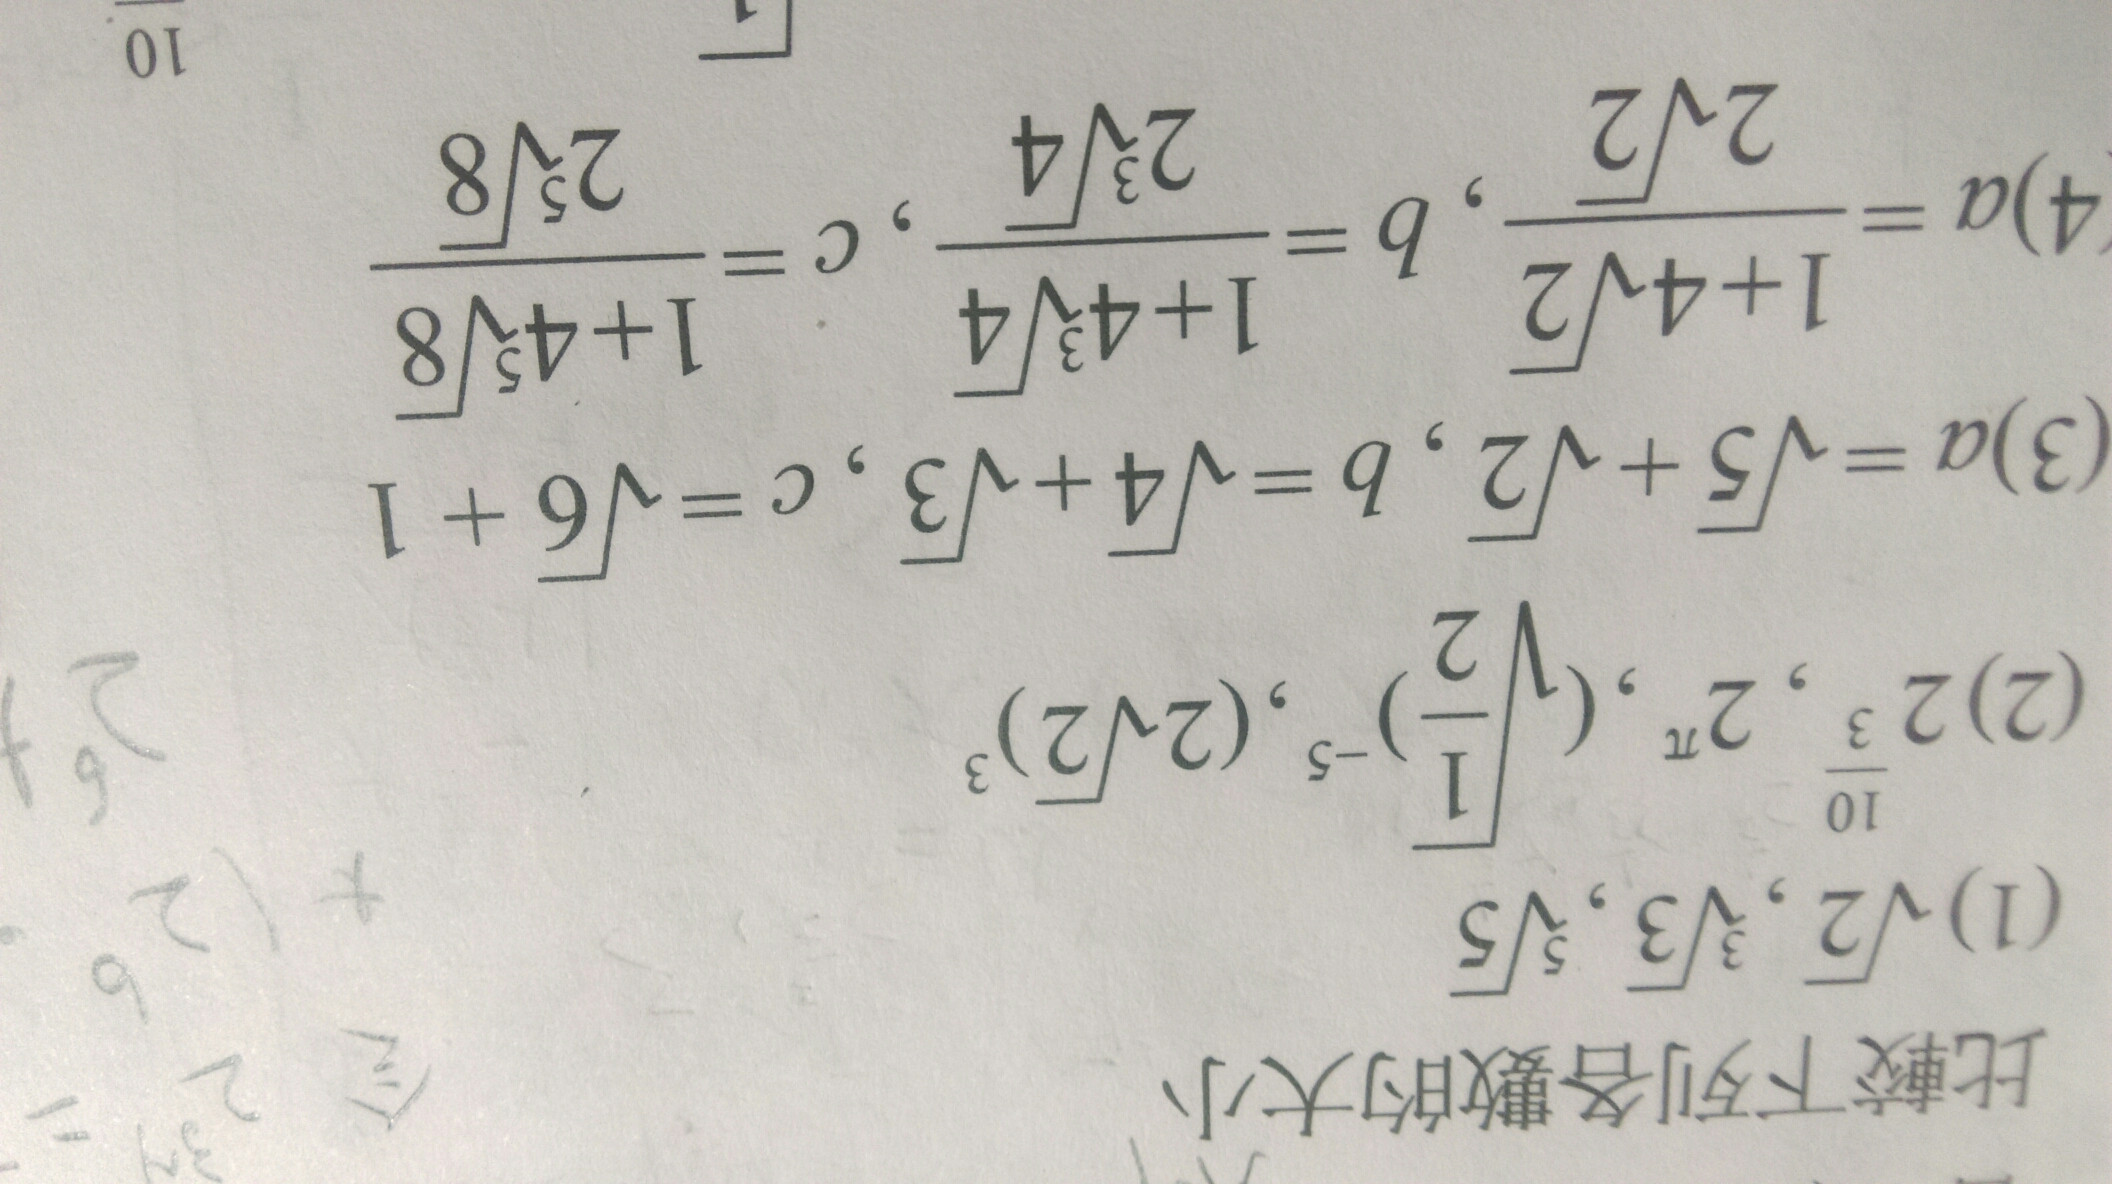 比較下列各數的大小
(1)√2, ∛3, ⁵√5
(2)2^(10/3), 2^π, (√(1/2))^(-5), (2√2)^3
(3)a=√5+√2, b=√4+√3, c=√6+1
(4)a=(1+4√2)/(2√2), b=(1+4∛4)/(2∛4), c=(1+4⁵√8)/(2⁵√8)
10